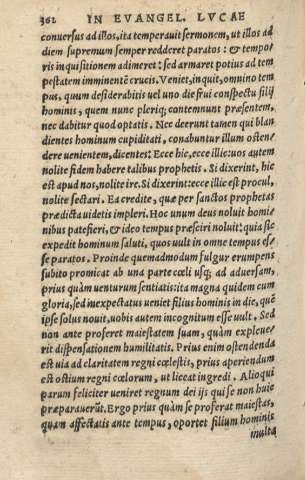 362 IN EVANGEL. LVCAE
conuersus ad illos, ita temperauit sermonem, ut illos ad
diem supremum semper redderet paratos: & tempo
ris inquisitionem adimeret: sed armaret potius ad tem
pestatem imminentē crucis. Veniet, inquit, omnino tem
pus, quum desiderabitis uel uno die frui conspectu filij
hominis, quem nunc pleriq; contemnunt præsentem,
nec dabitur quod optatis. Nec deerunt tamen qui blan
dientes hominum cupiditati, conabuntur illum osten
dere uenientem, dicentes: Ecce hic, ecce illic: uos autem
nolite fidem habere talibus prophetis. Si dixerint, hic
est apud nos, nolite ire. Si dixerint: ecce illic est procul,
nolite sectari. Ea credite, quæ per sanctos prophetas
prædicta uidetis impleri. Hoc unum deus noluit homi
nibus patefieri, & ideo tempus præsciri noluit: quia sic
expedit hominum saluti, quos uult in omne tempus es-
se paratos. Proinde quemadmodum fulgur erumpens
subito promicat ab una parte cœli usq; ad aduersam,
prius quàm uenturum sentiatis: ita magna quidem cum
gloria, sed inexpectatus ueniet filius hominis in die, quē
ipse solus nouit, uobis autem incognitum esse uult. Sed
non ante proferet maiestatem suam, quàm expleue-
rit dispensationem humilitatis. Prius enim ostendenda
est uia ad claritatem regni cœlestis, prius aperiendum
est ostium regni cœlorum, ut liceat ingredi. Alioqui
parum feliciter ueniret regnum dei ijs qui se non huic
præparauerūt. Ergo prius quàm se proferat maiestas,
quam affectatis ante tempus, oportet filium hominis
multa